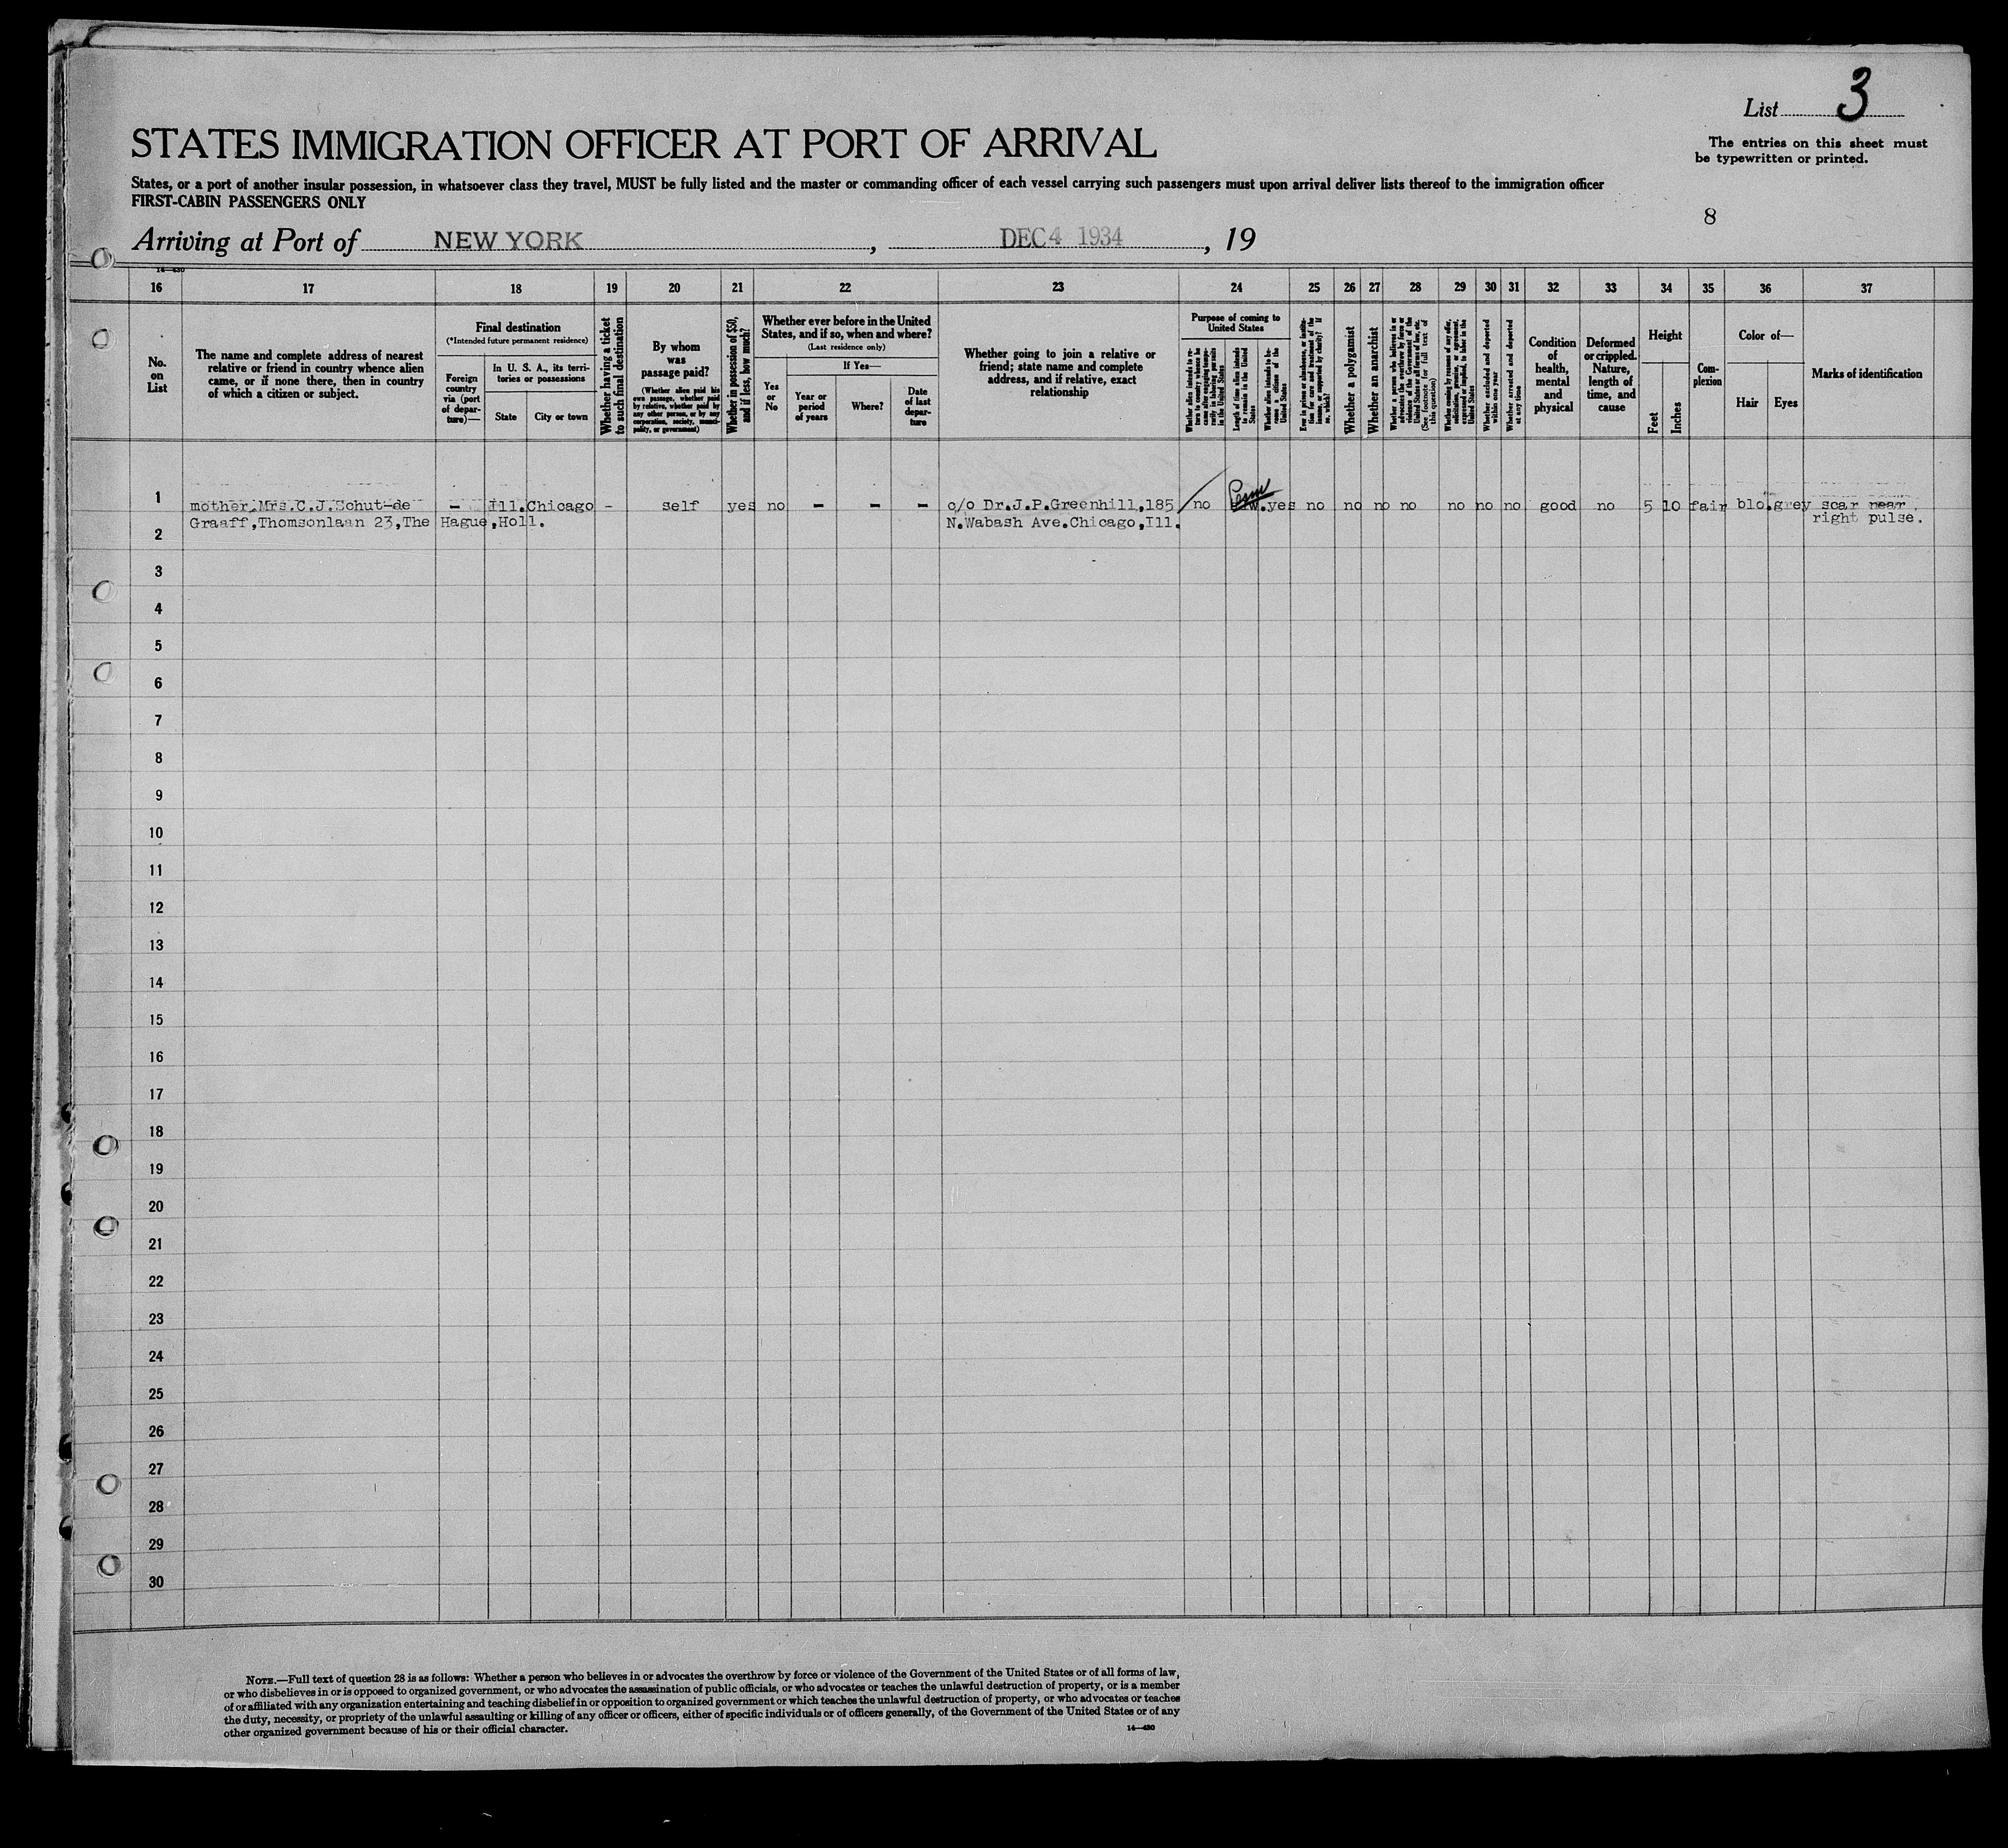 List 3
STATES IMMIGRATION OFFICER AT PORT OF ARRIVAL
The entries on this sheet must
be typewritten or printed.
States, or a port of another insular possession, in whatsoever class they travel, MUST be fully listed and the master or commanding officer of each vessel carrying such passengers must upon arrival deliver lists thereof to the immigration officer
FIRST-CABIN PASSENGERS ONLY
8
Arriving at Port of NEW YORK, DEC 4 1934, 19
14-430
16 17 18 19 20 21 22 23 24 25 26 27 28 29 30 31 32 33 34 35 36 37
No.
on
List
The name and complete address of nearest
relative or friend in country whence alien
came, or if none there, then in country
of which a citizen or subject.
Final destination
(*Intended future permanent residence)
Foreign
country
via (port
of depar-
ture)—
In U. S. A., its terri-
tories or possessions
State
City or town
Whether having a ticket
to such final destination
By whom
was
passage paid?
(Whether alien paid his
own passage, whether paid
by relative, whether paid by
any other person, or by any
corporation, society, munici-
pality, or government)
Whether in possession of $50,
and if less, how much?
Whether ever before in the United
States, and if so, when and where?
(Last residence only)
Yes
or
No
If Yes—
Year or
period
of years
Where?
Date
of last
depar-
ture
Whether going to join a relative or
friend; state name and complete
address, and if relative, exact
relationship
Purpose of coming to
United States
Whether alien intends to re-
turn to country whence he
came after engaging tempo-
rarily in laboring pursuits
in the United States
Length of time alien intends
to remain in the United
States
Whether alien intends to be-
come a citizen of the
United States
Ever in prison or almshouse, or institu-
tion for care and treatment of the
insane, or supported by charity? If
so, which?
Whether a polygamist
Whether an anarchist
Whether a person who believes in or
advocates the overthrow by force or
violence of the Government of the
United States or all forms of law, etc.
(See footnote for full text of
this question)
Whether coming by reason of any offer,
solicitation, promise, or agreement,
expressed or implied, to labor in the
United States
Whether excluded and deported
within one year
Whether arrested and deported
at any time
Condition
of
health,
mental
and
physical
Deformed
or crippled.
Nature,
length of
time, and
cause
Height
Feet
Inches
Com-
plexion
Color of—
Hair
Eyes
Marks of identification
1 mother,Mrs.C.J.Schut-de - Ill. Chicago - self yes no - - - c/o Dr.J.P.Greenhill,185 no yes no no no no no no no good no 5 10 fair blo. grey scar near
Graaff,Thomsonlaan 23,The Hague,Holl. N.Wabash Ave.Chicago,Ill. right pulse.
2
3
4
5
6
7
8
9
10
11
12
13
14
15
16
17
18
19
20
21
22
23
24
25
26
27
28
29
30
NOTE.—Full text of question 28 is as follows: Whether a person who believes in or advocates the overthrow by force or violence of the Government of the United States or of all forms of law,
or who disbelieves in or is opposed to organized government, or who advocates the assassination of public officials, or who advocates or teaches the unlawful destruction of property, or is a member
of or affiliated with any organization entertaining and teaching disbelief in or opposition to organized government or which teaches the unlawful destruction of property, or who advocates or teaches
the duty, necessity, or propriety of the unlawful assaulting or killing of any officer or officers, either of specific individuals or of officers generally, of the Government of the United States or of any
other organized government because of his or their official character.
14-430